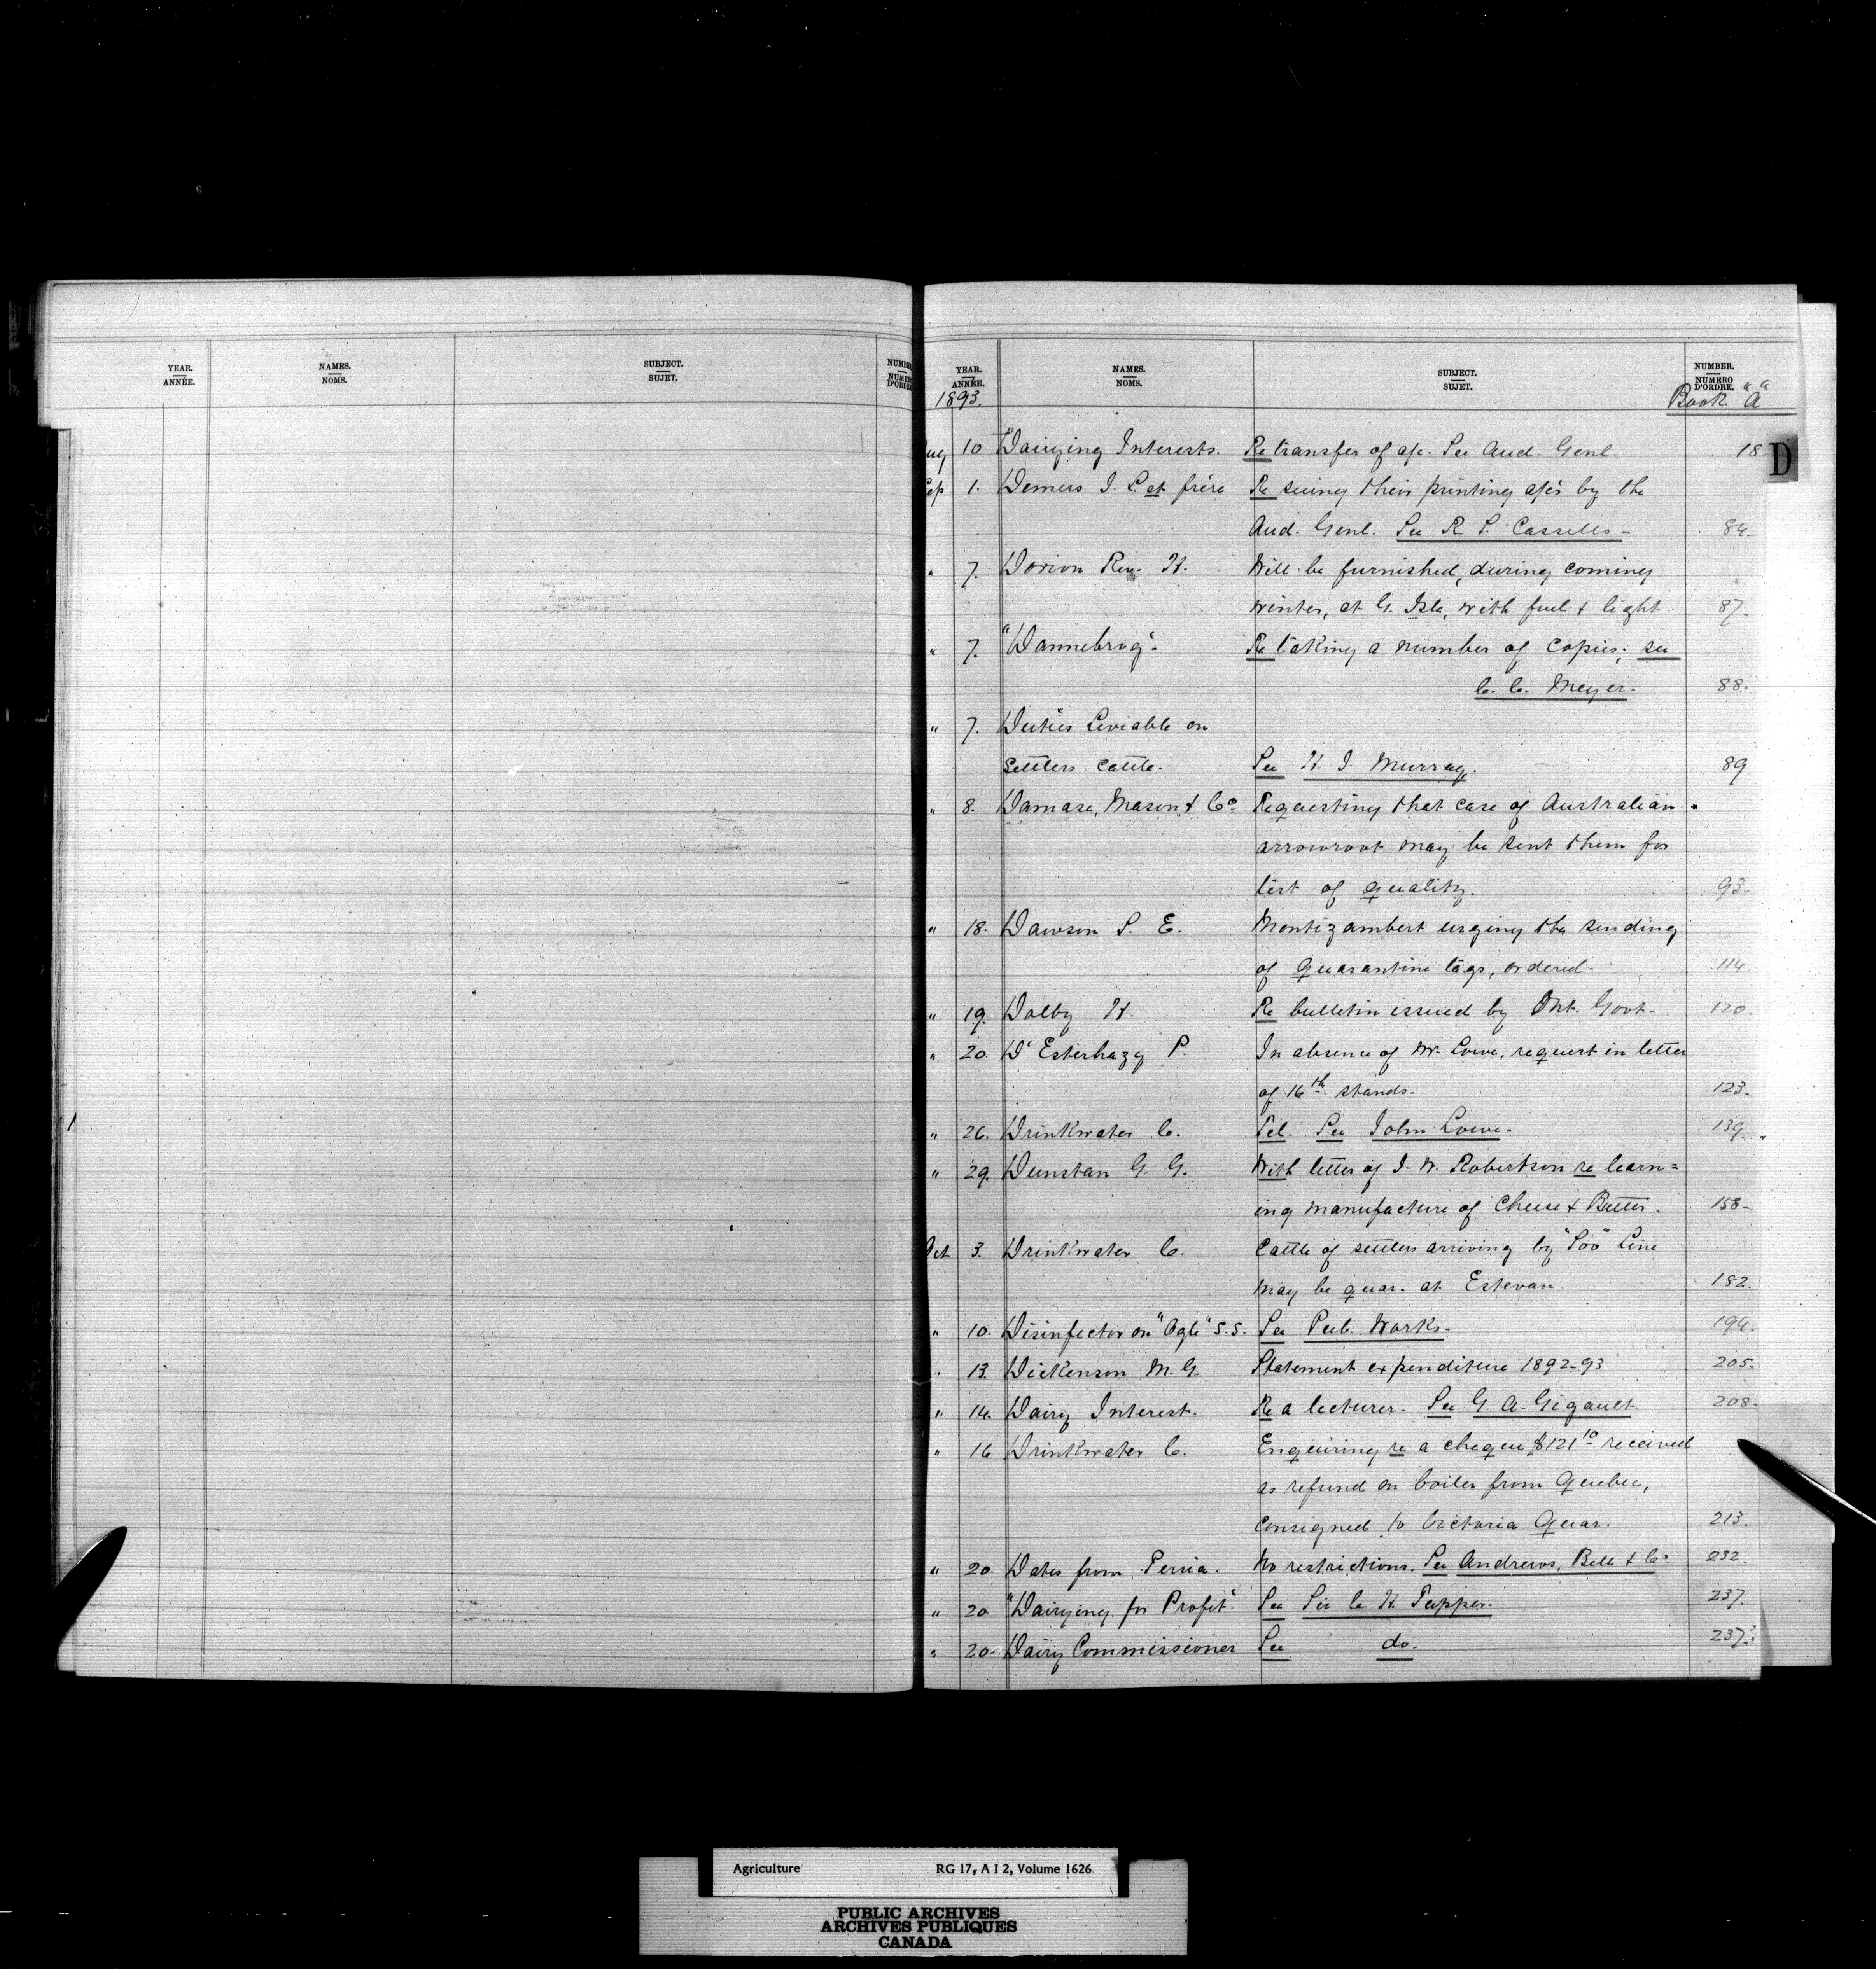 YEAR.
ANNÉE.
NAMES.
NOMS.
SUBJECT.
SUJET.
NUMBER
NUMERO
D'ORDRE
YEAR.
ANNÉE.
1893.
NAMES.
NOMS.
SUBJECT.
SUJET.
NUMBER.
NUMERO
D'ORDRE.
Book "A"
D
Aug 10 "Dairying Interests. Re transfer of a/c. See Aud. Genl. 18.
Sep 1. Demers J. L. et frère Re suing their printing a/cs by the
Aud. Genl. See R. S. Cassells - 84.
" 7. Dorion Rev. H. Will be furnished, during coming
winter, at G. Isle, with fuel & light. 87.
" 7. "Dannebrog". Re taking a number of copies; see
C. C. Meyer. 88.
" 7. Duties Leviable on
Settlers Cattle. See H. J. Murray. 89
" 8. Damase, Mason & Co. Requesting that case of Australian
arrowroot may be sent them for
test of quality. 93.
" 18. Dawson S. E. Montizambert urging the sending
of Quarantine tags, ordered. 114
" 19. Dolby H. Re bulletin issued by Ont. Govt. 120.
" 20. D'Esterhazy P. In absence of Mr. Lowe, request in letter
of 16th stands. 123.
" 26. Drinkwater C. Tel. See John Lowe. 139.
" 29. Dunstan G. G. With letter of J. W. Robertson re learn=
ing manufacture of Cheese & Butter. 158-
Oct 3. Drinkwater C. Cattle of settlers arriving by "Soo" Line
may be quar. at Estevan. 182.
" 10. Disinfector on "Ogle" S.S. See Pub. Works. 194.
" 13. Dickenson M. G. Statement expenditure 1892-93 205.
" 14. Dairy Interest. Re a lecturer. See G. A. Gigault. 208.
" 16 Drinkwater C. Enquiring re a cheque $121 10 received
as refund on boiler from Quebec,
consigned to Victoria Quar. 213.
" 20. Dates from Persia. No restrictions. See Andrews, Bell & Co. 232.
" 20 "Dairying for Profit". See Sir C. H. Tupper. 237.
" 20. Dairy Commissioner See do. 237.
Agriculture RG 17, A I 2, Volume 1626
PUBLIC ARCHIVES
ARCHIVES PUBLIQUES
CANADA